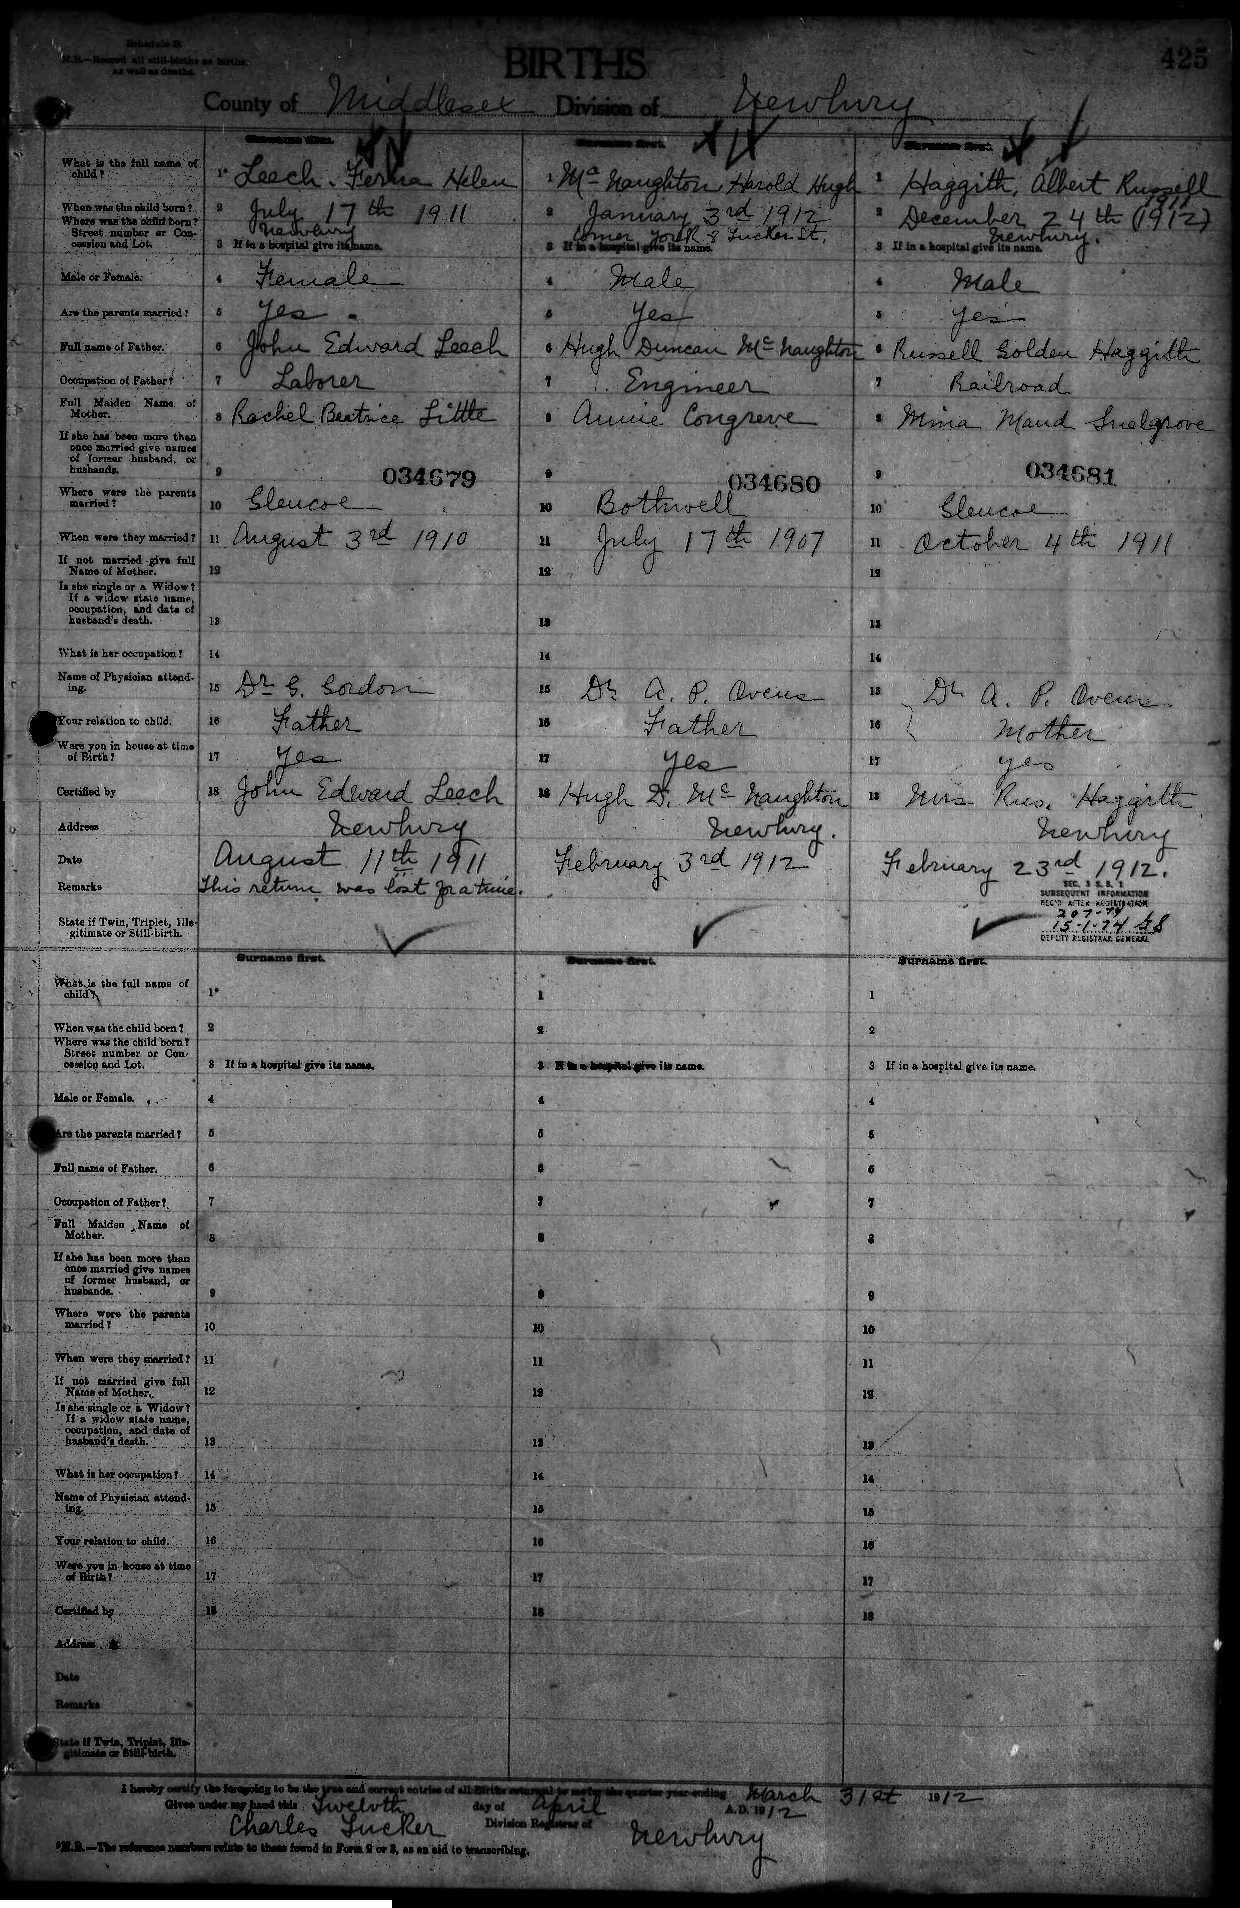 Schedule B
N.B.—Record all still-births as births, as well as deaths.
BIRTHS
425
County of Middlesex Division of Newbury
Surname first. Surname first. Surname first.
What is the full name of child? 1* Leech. Ferna Helen 1 Mc Naughton, Harold Hugh 1 Haggith, Albert Russell
1911
When was the child born? 2 July 17th 1911 2 January 3rd 1912 2 December 24th (1912)
Where was the child born? Street number or Concession and Lot. Newbury corner York & Tucker St. Newbury.
3 If in a hospital give its name. 3 If in a hospital give its name. 3 If in a hospital give its name.
Male or Female. 4 Female 4 Male 4 Male
Are the parents married? 5 Yes 5 Yes 5 yes
Full name of Father. 6 John Edward Leech 6 Hugh Duncan Mc Naughton 6 Russell Golden Haggith
Occupation of Father? 7 Laborer 7 Engineer 7 Railroad
Full Maiden Name of Mother. 8 Rachel Beatrice Little 8 Annie Congreve 8 Mina Maud Snelgrove
If she has been more than once married give names of former husband, or husbands. 9 034679 9 034680 9 034681
Where were the parents married? 10 Glencoe 10 Bothwell 10 Glencoe
When were they married? 11 August 3rd 1910 11 July 17th 1907 11 October 4th 1911
If not married give full Name of Mother. 12 12 12
Is she single or a Widow? If a widow state name, occupation, and date of husband's death. 13 13 13
What is her occupation? 14 14 14
Name of Physician attending. 15 Dr G. Gordon 15 Dr A. P. Owens 15 Dr A. P. Owens
Your relation to child. 16 Father 16 Father 16 Mother
Were you in house at time of Birth? 17 yes 17 yes 17 yes
Certified by 18 John Edward Leech 18 Hugh D. Mc Naughton 18 Mrs Rus. Haggith
Address Newbury Newbury. Newbury
Date August 11th 1911 February 3rd 1912 February 23rd 1912.
Remarks This return was lost for a time.
SEC. 3 S.S. 2
SUBSEQUENT INFORMATION
REC'D AFTER REGISTRATION
207-74
15-1-74
DEPUTY REGISTRAR GENERAL
State if Twin, Triplet, Illegitimate or Still-birth.
Surname first. Surname first. Surname first.
What is the full name of child? 1* 1 1
When was the child born? 2 2 2
Where was the child born? Street number or Concession and Lot. 3 If in a hospital give its name. 3 If in a hospital give its name. 3 If in a hospital give its name.
Male or Female. 4 4 4
Are the parents married? 5 5 5
Full name of Father. 6 6 6
Occupation of Father? 7 7 7
Full Maiden Name of Mother. 8 8 8
If she has been more than once married give names of former husband, or husbands. 9 9 9
Where were the parents married? 10 10 10
When were they married? 11 11 11
If not married give full Name of Mother. 12 12 12
Is she single or a Widow? If a widow state name, occupation, and date of husband's death. 13 13 13
What is her occupation? 14 14 14
Name of Physician attending. 15 15 15
Your relation to child. 16 16 16
Were you in house at time of Birth? 17 17 17
Certified by 18 18 18
Address
Date
Remarks
State if Twin, Triplet, Illegitimate or Still-birth.
I hereby certify the foregoing to be the true and correct entries of all Births returned to me for the quarter year ending March 31st 1912
Given under my hand this Twelvth day of April A.D. 1912
Charles Tucker Division Registrar of Newbury
*N.B.—The reference numbers relate to those found in Form 2 or 3, as an aid to transcribing.